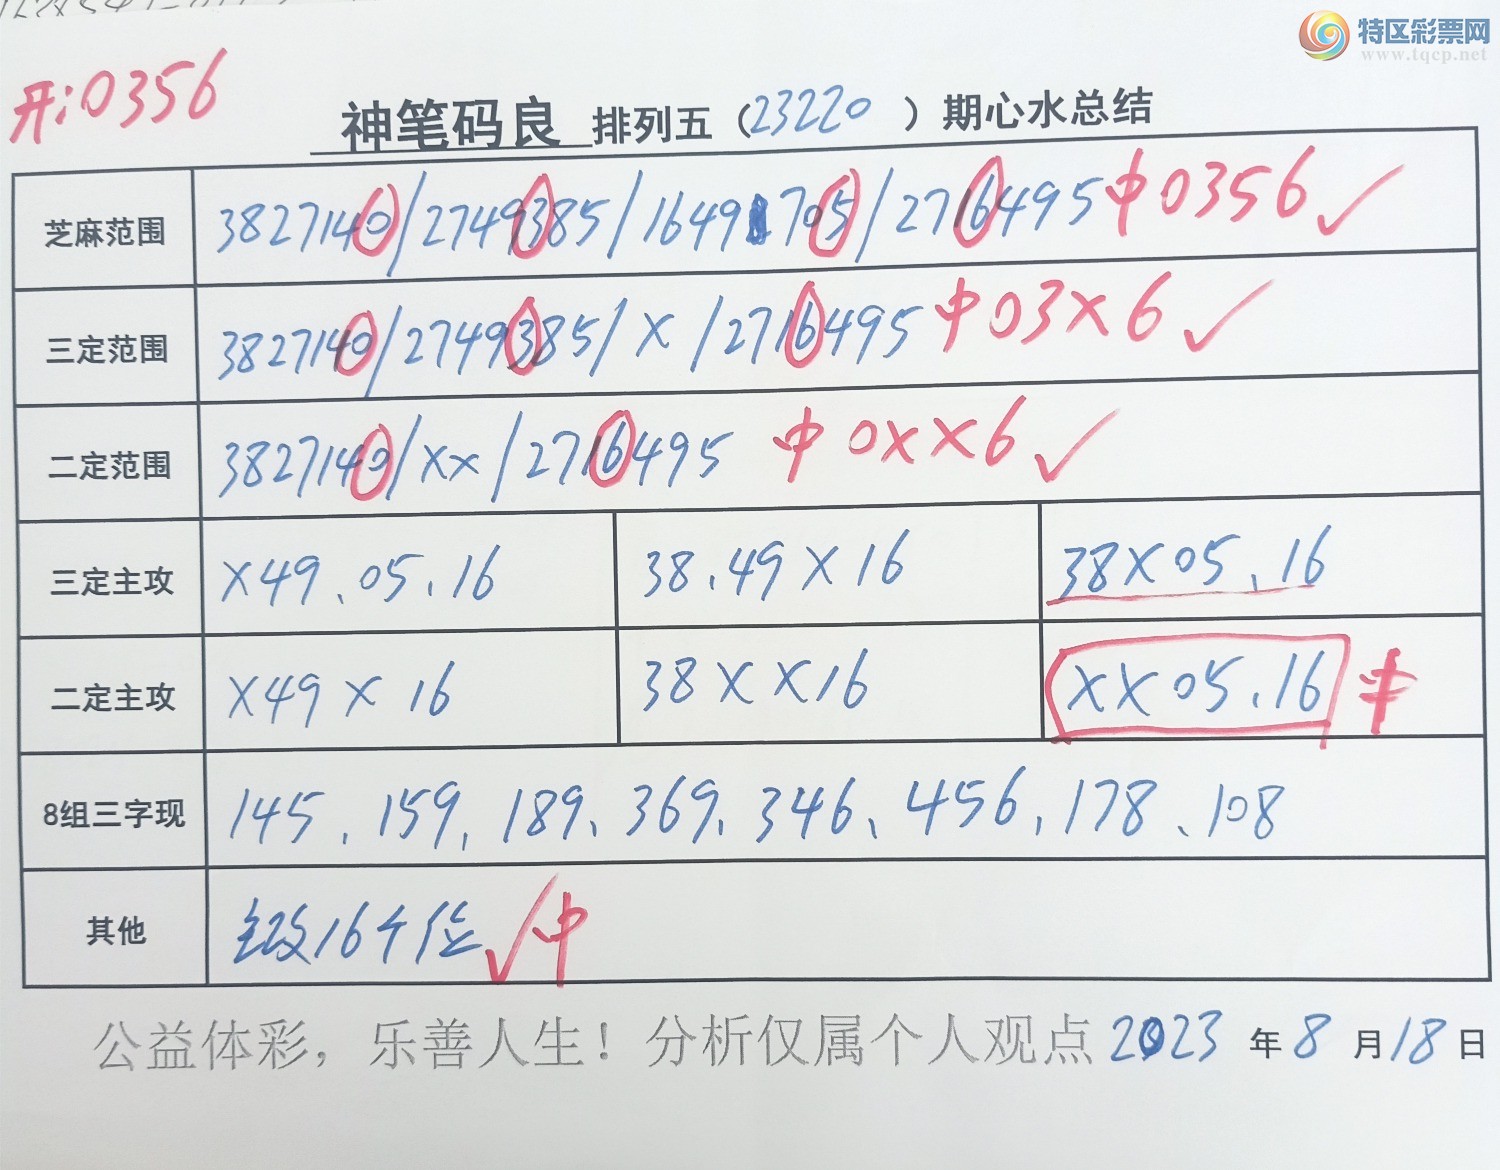 特区彩票网
www.tqcp.net
开:0356
神笔码良 排列五（23220）期心水总结
芝麻范围 3827140/2749385/1649 705/2716495 中0356 ✓
三定范围 3827140/2749385/X/2716495 中03X6 ✓
二定范围 3827140/XX/2716495 中0XX6 ✓
三定主攻 X49、05、16 38、49X16 38X05、16
二定主攻 X49X16 38XX16 XX05、16 中
8组三字现 145、159、189、369、346、456、178、108
其他 主攻16个位 ✓中
公益体彩，乐善人生！分析仅属个人观点 2023年8月18日